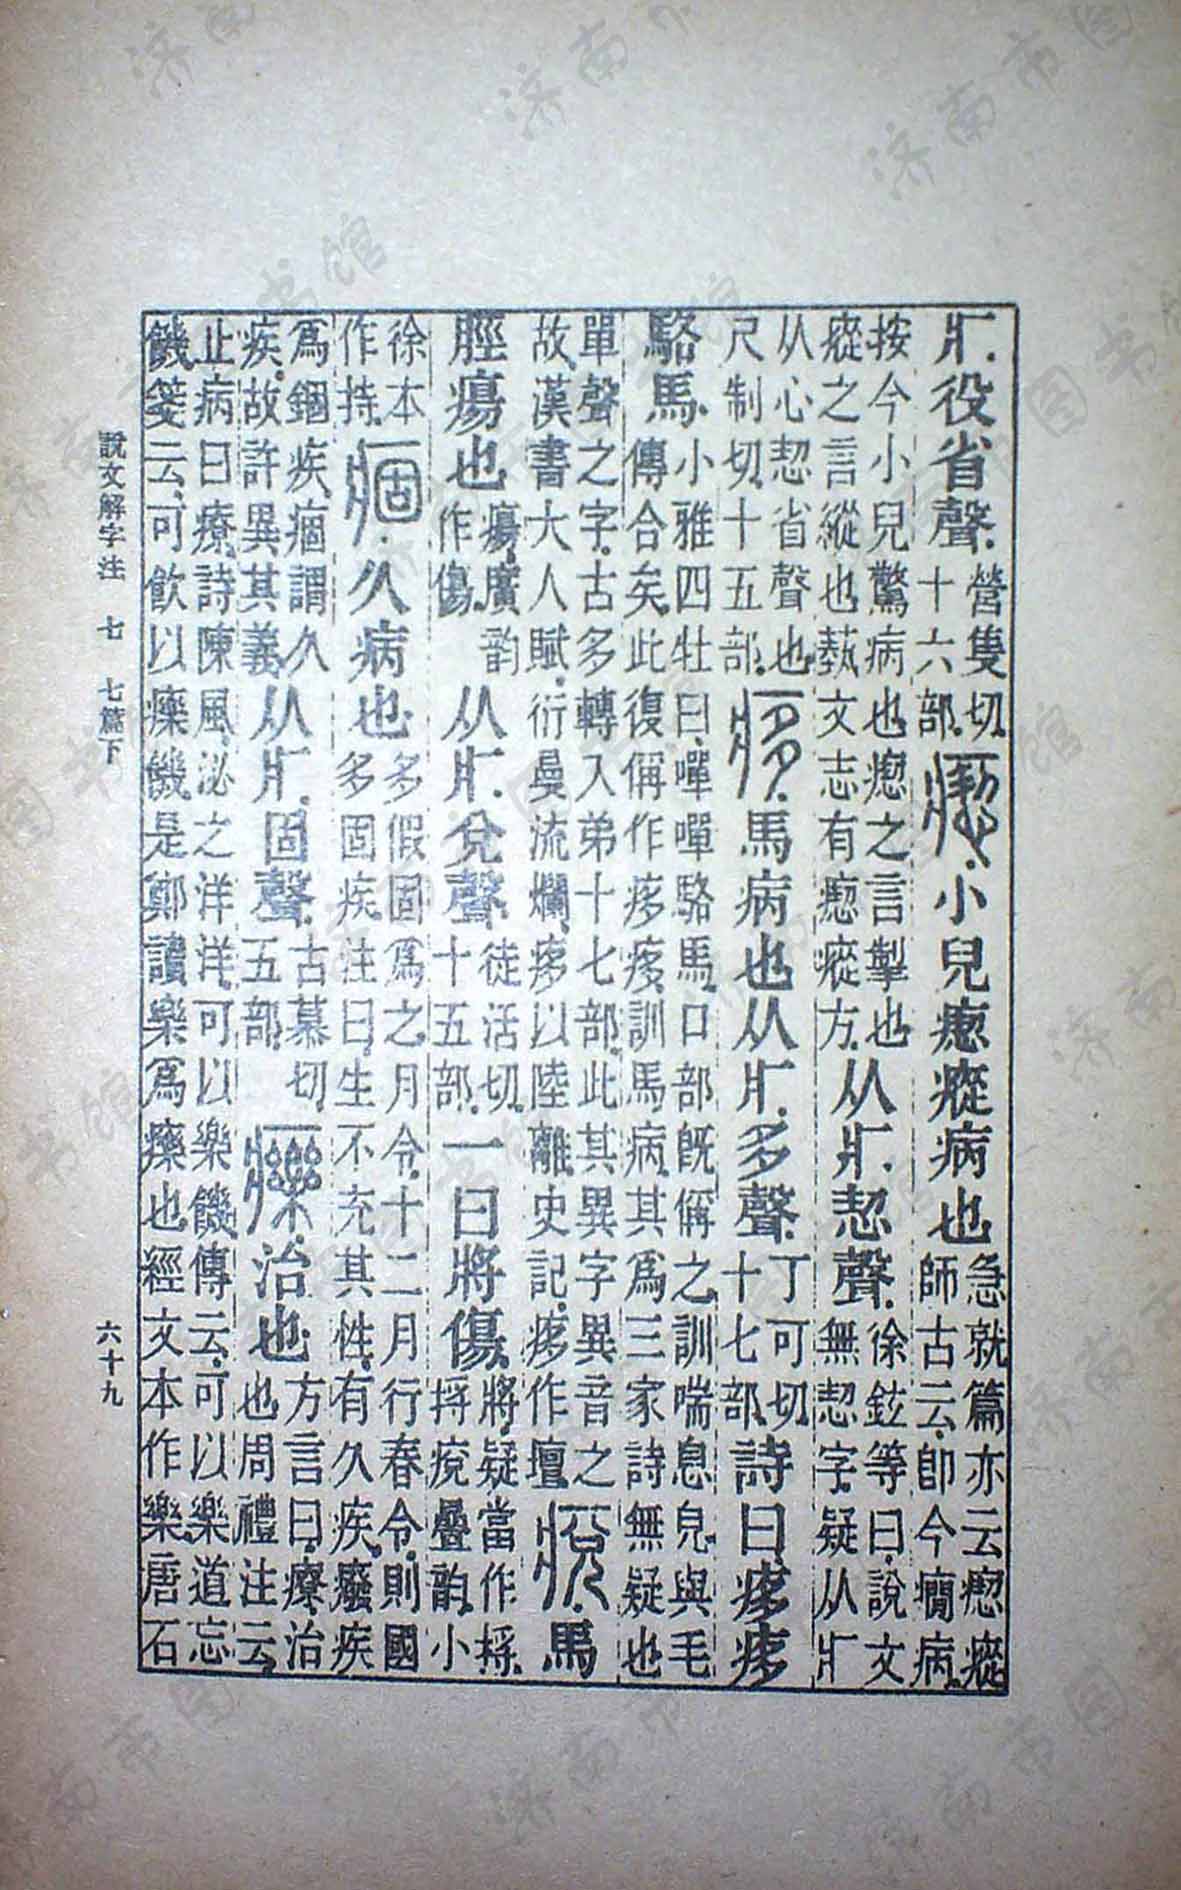 疒役省聲。營隻切十六部。瘛。小兒瘛瘲病也急就篇亦云瘛瘲師古云。卽今癇病。
按今小兒驚病也瘛之言掣也瘲之言縱也蓺文志有瘛瘲方。从疒恝聲。徐鉉等曰。說文無恝字。疑从疒
从心恝省聲也尺制切。十五部。痑。馬病也从疒多聲。丁可切十七部。詩曰。痑痑
駱馬。小雅四牡曰。嘽嘽駱馬。口部旣偁之訓喘息皃與毛傳合矣。此復偁作痑痑。訓馬病。其爲三家詩無疑也
單聲之字。古多轉入弟十七部。此其異字異音之故。漢書大人賦。衍曼流爛。痑以陸離。史記。痑作壇。痥。馬
脛瘍也瘍、廣韵作傷。从疒兌聲。徒活切。十五部。一曰將傷。將疑當作捋。捋痥疊韵。小
徐本作持。痼。久病也多假固爲之。月令。十二月行春令。則國多固疾。注曰。生不充其性。有久疾。癈疾
爲錮疾。痼謂久疾。故許異其義。从疒固聲。古慕切五部。𤻲。治也方言曰。療、治也。周禮注云、
止病曰療。詩陳風。泌之洋洋。可以樂饑傳云。可以樂道忘饑箋云。可飮以𤻲饑。是鄭讀樂爲𤻲也。經文本作樂。唐石
說文解字注 七 七篇下 六十九
济南市图书馆